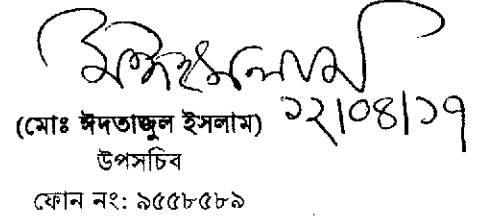 ১২/০৪/১৭
(মোঃ ঈদতাজুল ইসলাম)
উপসচিব
ফোন নং: ৯৫৫৮৫৮৯